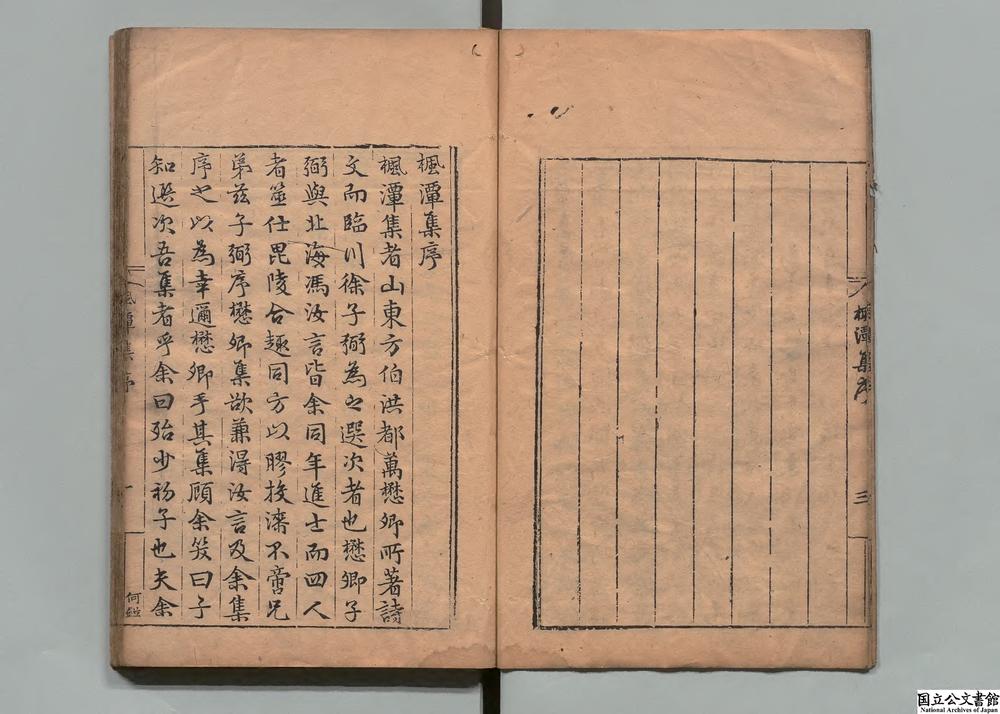 楓潭集序
三
楓潭集序
楓潭集者山東方伯洪都萬懋卿所著詩
文而臨川徐子弼為之選次者也懋卿子
弼與北海馮汝言皆余同年進士而四人
者筮仕毘陵合趣同方以膠投漆不啻兄
弟茲子弼序懋卿集欲兼淂汝言及余集
序之以為幸適懋卿手其集顧余笑曰子
知選次吾集者乎余曰殆少初子也夫余
楓潭集序
一
何鎰
国立公文書館
National Archives of Japan